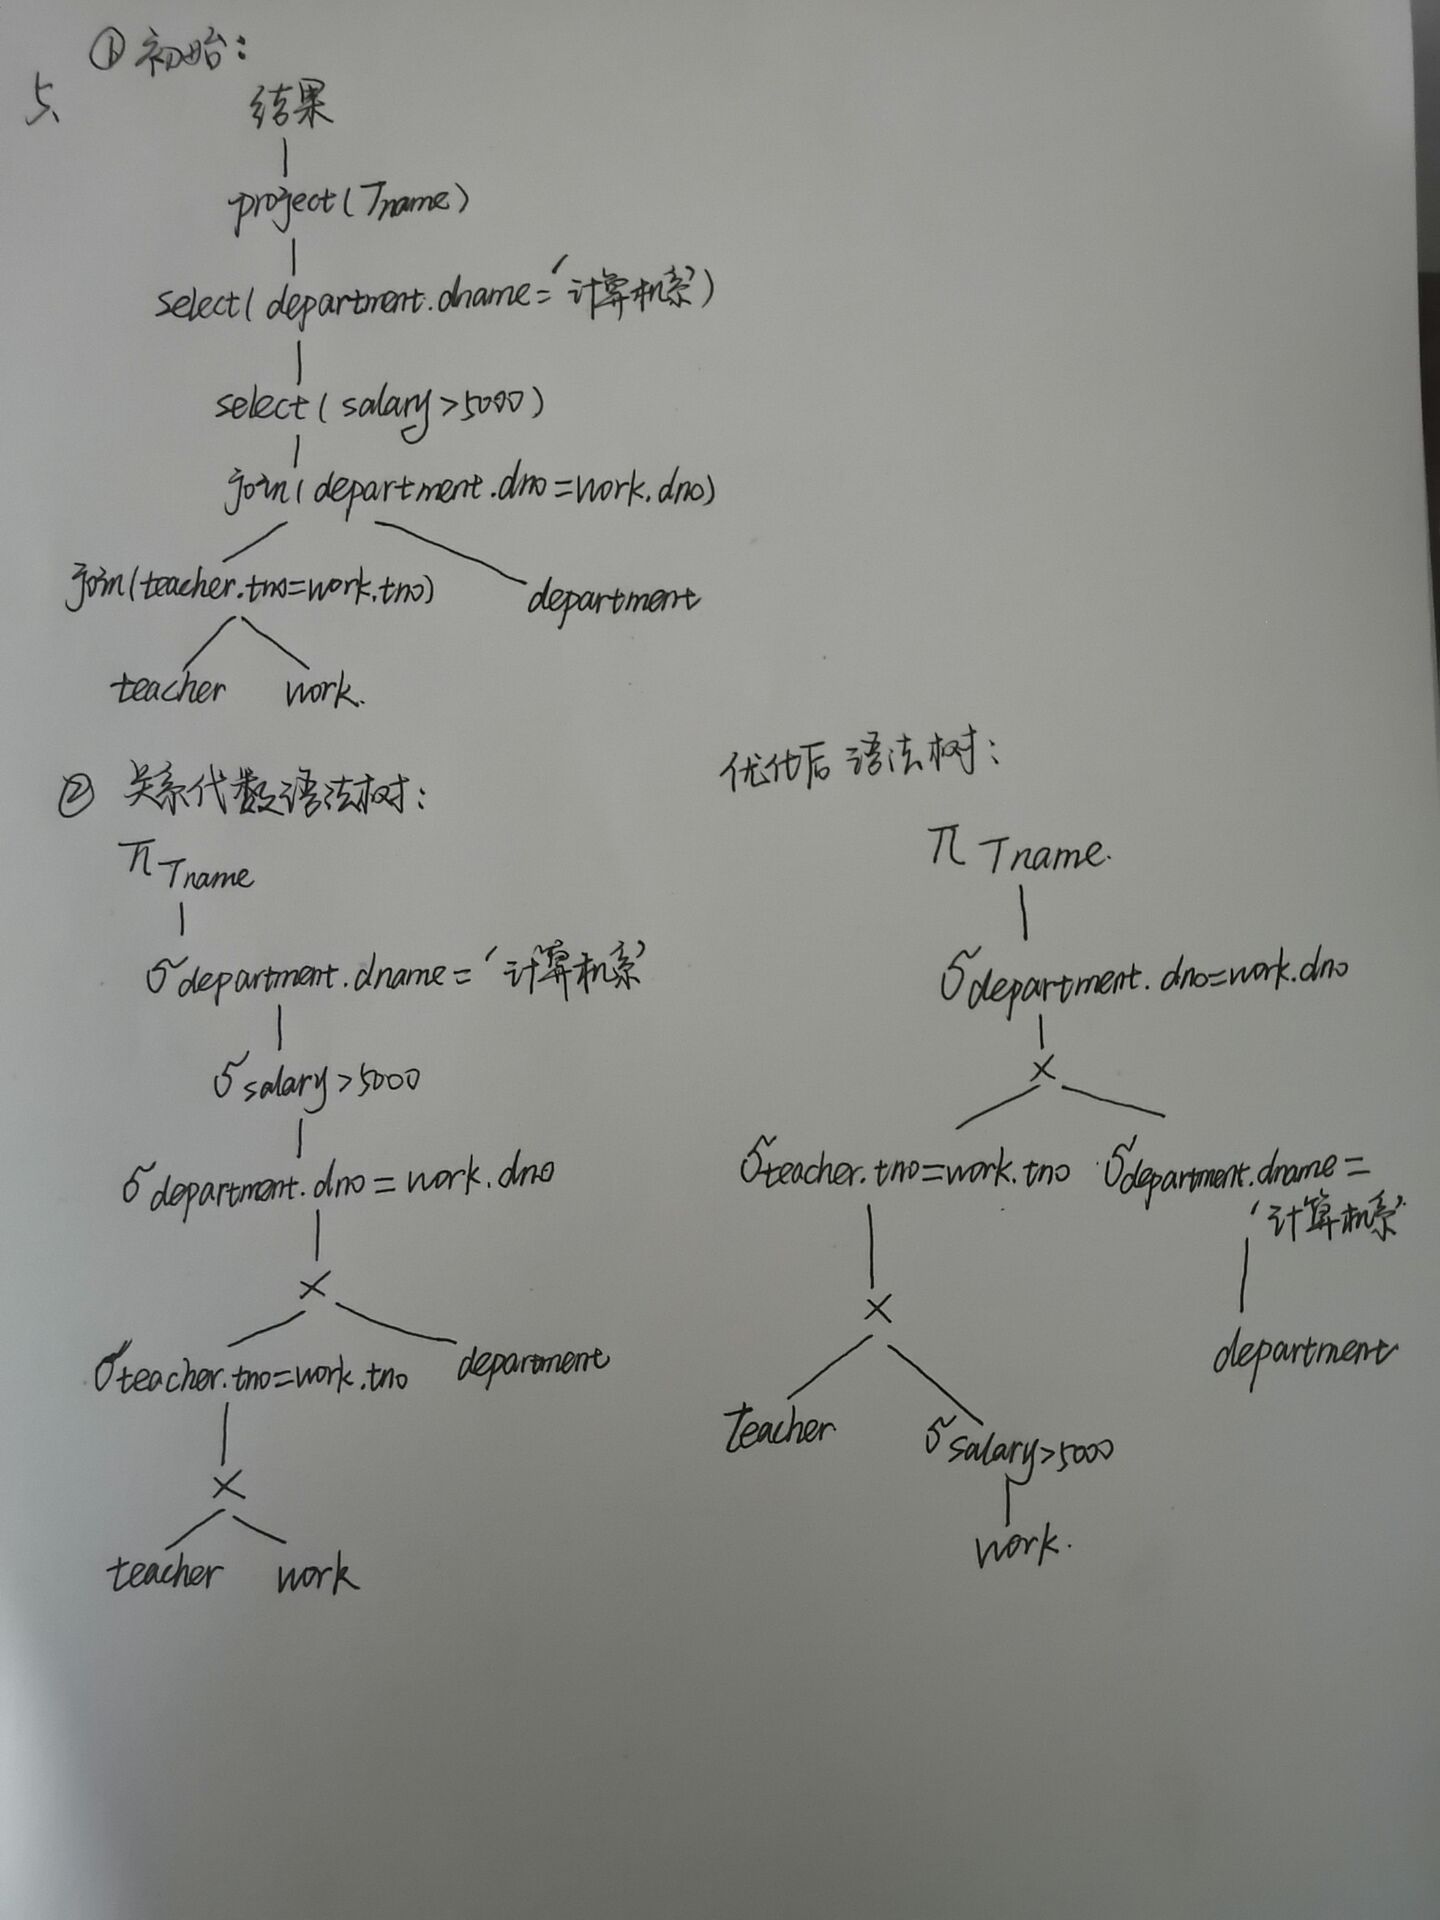 ① 初始：
5、
结果
project(Tname)
select(department.dname='计算机系')
select(salary>5000)
join(department.dno=work.dno)
join(teacher.tno=work.tno)
department
teacher
work.
② 关系代数语法树：
π Tname
σ department.dname='计算机系'
σ salary>5000
σ department.dno=work.dno
×
σ teacher.tno=work.tno
department
×
teacher
work
优化后语法树：
π Tname.
σ department.dno=work.dno
×
σ teacher.tno=work.tno
σ department.dname=
'计算机系'
×
department
Teacher
σ salary>5000
work.